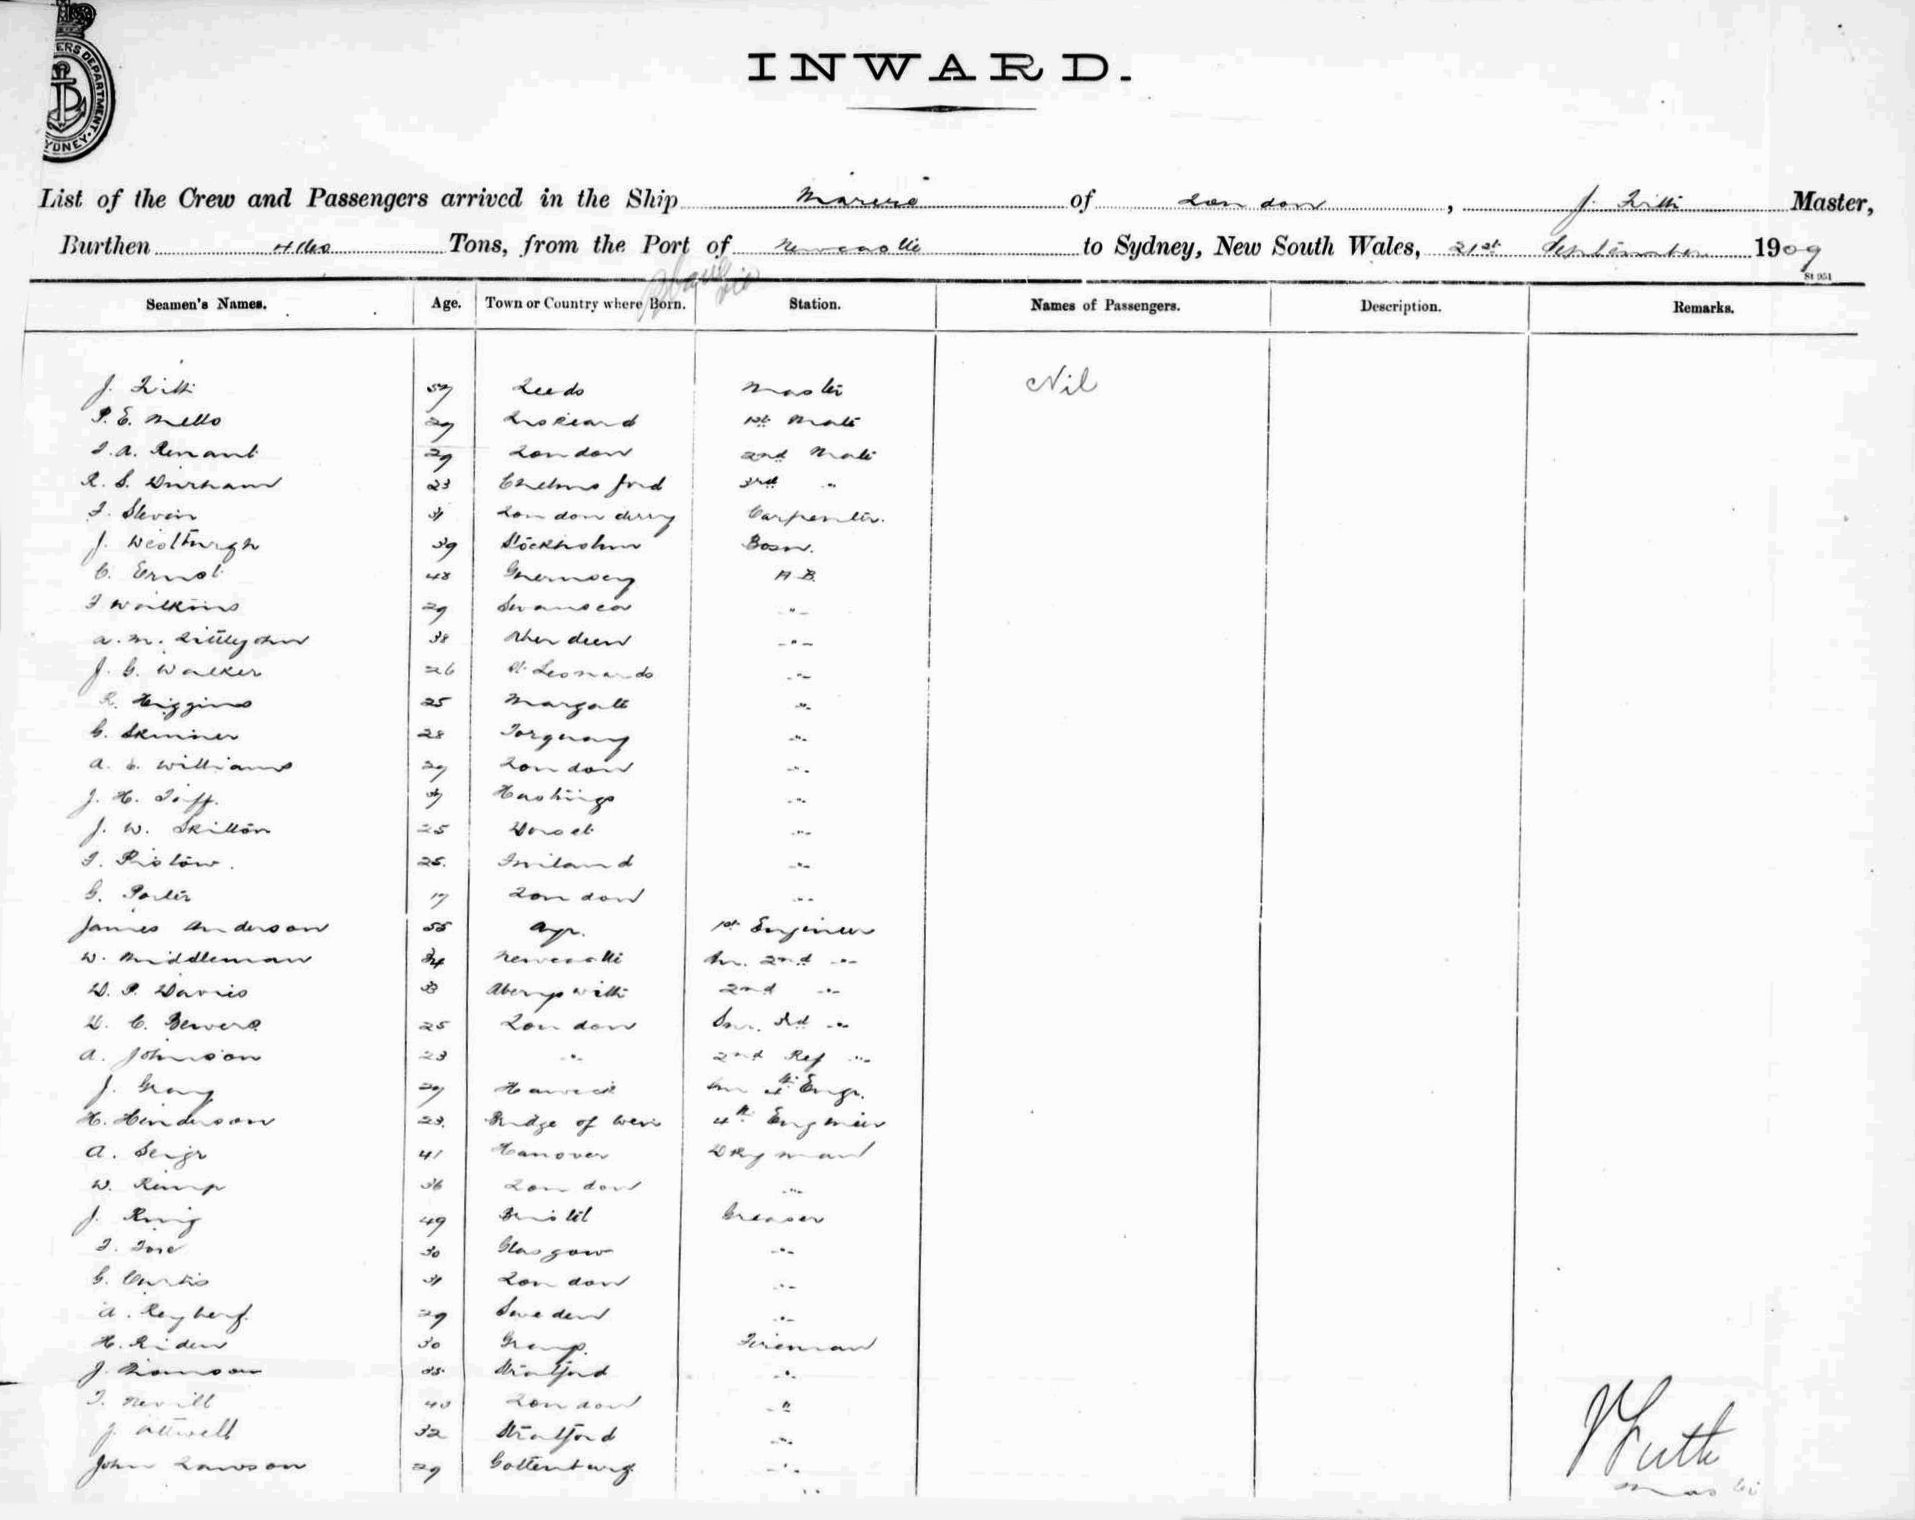 ERS DEPARTMENT. SYDNEY.
INWARD.
List of the Crew and Passengers arrived in the Ship of London, J. Master,
Burthen Tons, from the Port of Newcastle to Sydney, New South Wales, 21st September 1909
St 951
Seamen's Names. Age. Town or Country where Born. Station. Names of Passengers. Description. Remarks.
J. 57 Leeds Master Nil
P. E. Mello 29 Liskeard 1st Mate
29 London 2nd Mate
R. S. Durham 23 Chelmsford 3rd "
31 Londonderry Carpenter.
J. 39 Stockholm Bosn.
C. Ernst 48 Guernsey A.B.
Wilkins 29 Swansea "
A. M. Littlejohn 38 Aberdeen "
J. G. Walker 26 St Leonards "
R. Higgins 25 Margate "
G. Skinner 28 Torquay "
A. E. Williams 29 London "
J. H. 37 Hastings "
J. W. Skilton 25 Dorset "
25. "
G. Porter 17 London "
James Anderson 55 Ayr. 1st Engineer
W. Middleman 34 Newcastle 2nd "
D. P. Davies 33 2nd "
D. C. Bewers 25 London Snr. 3rd "
A. Johnson 23 " 2nd Ref "
J. Gray 29 Hawick 4th Engr.
H. Henderson 23. Bridge of Weir 4th Engineer
A. 41 Hanover Dkyman
W. Kemp 36 London "
J. King 49 Bristol Greaser
30 Glasgow "
G. Curtis 31 London "
A. 29 Sweden "
H. Riden 30 Fireman
J. Thomson 35 Stratford "
Nevill 40 London "
J. Attwell 32 Stratford "
John Lawson 29 Gottenburg "
Master